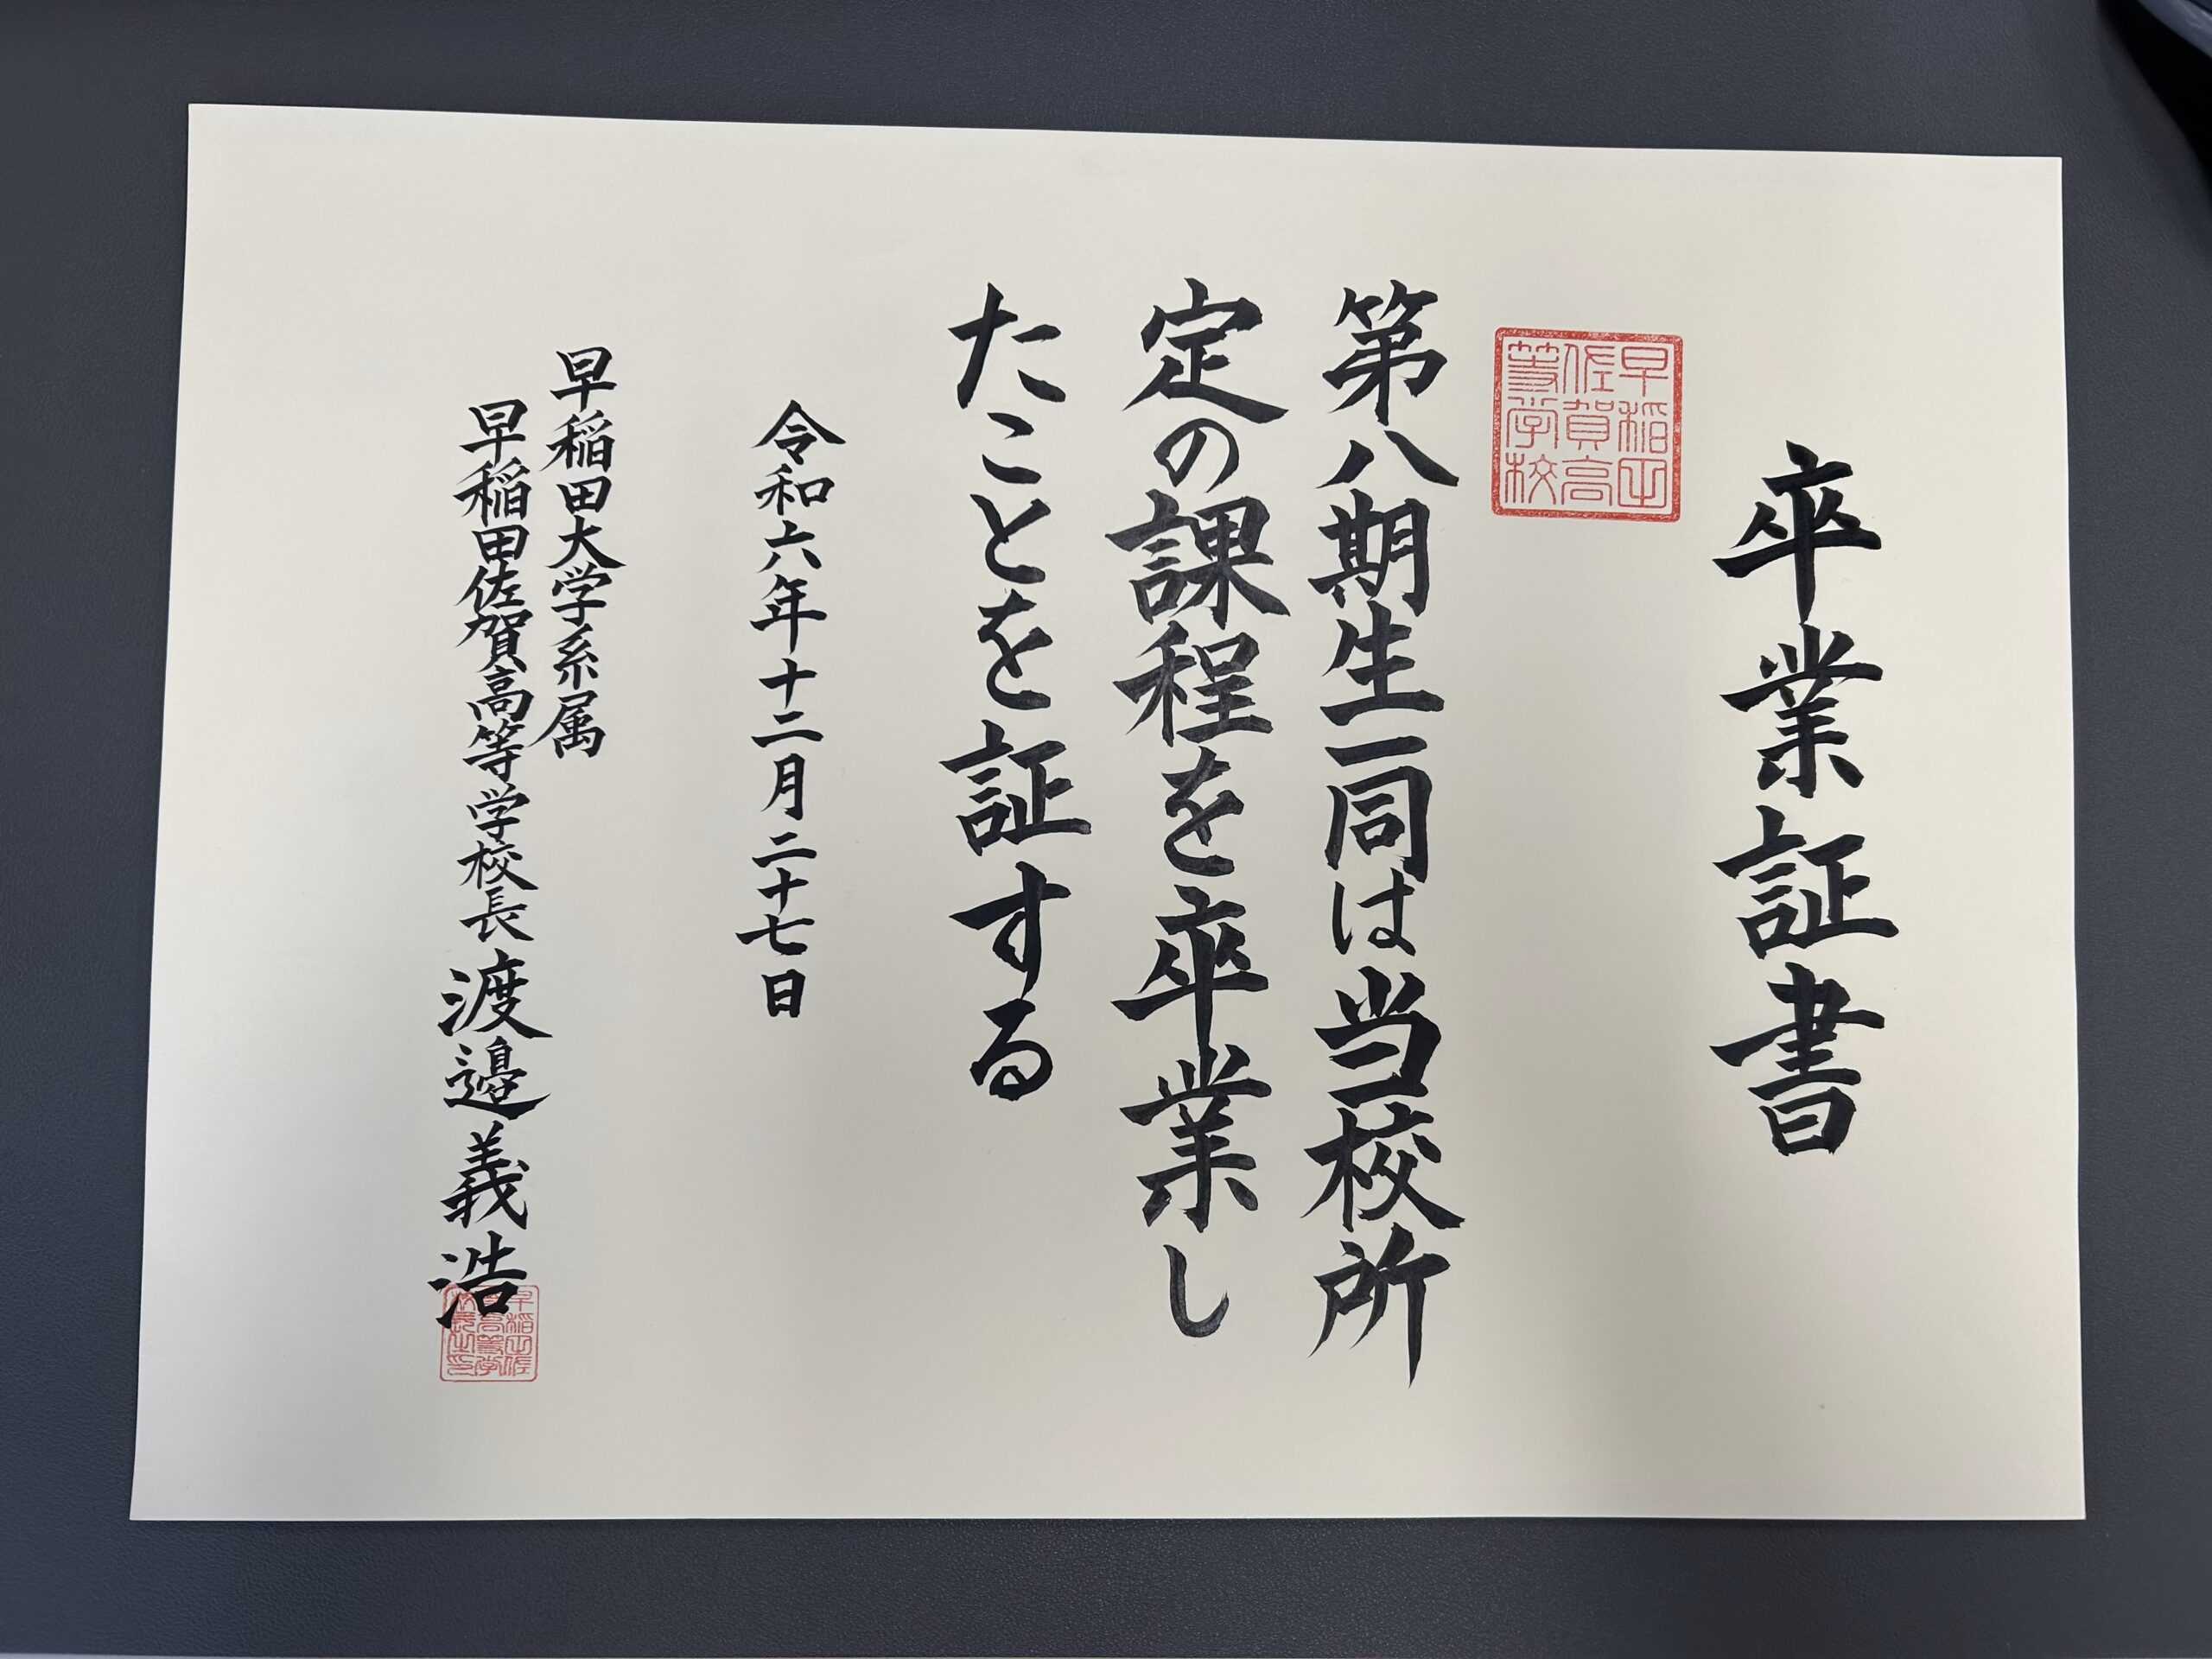 卒業証書
早稲田
佐賀高
等学校
第八期生一同は当校所
定の課程を卒業し
たことを証する
令和六年十二月二十七日
早稲田大学系属
早稲田佐賀高等学校長渡邉義浩